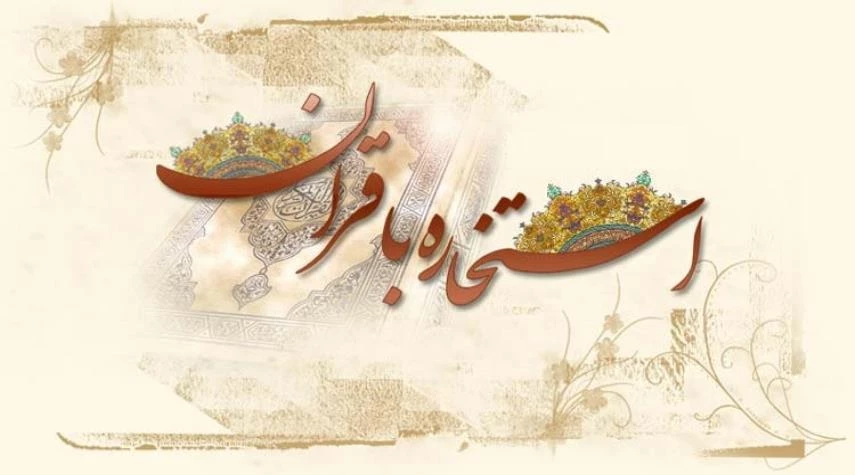 استخاره با قران